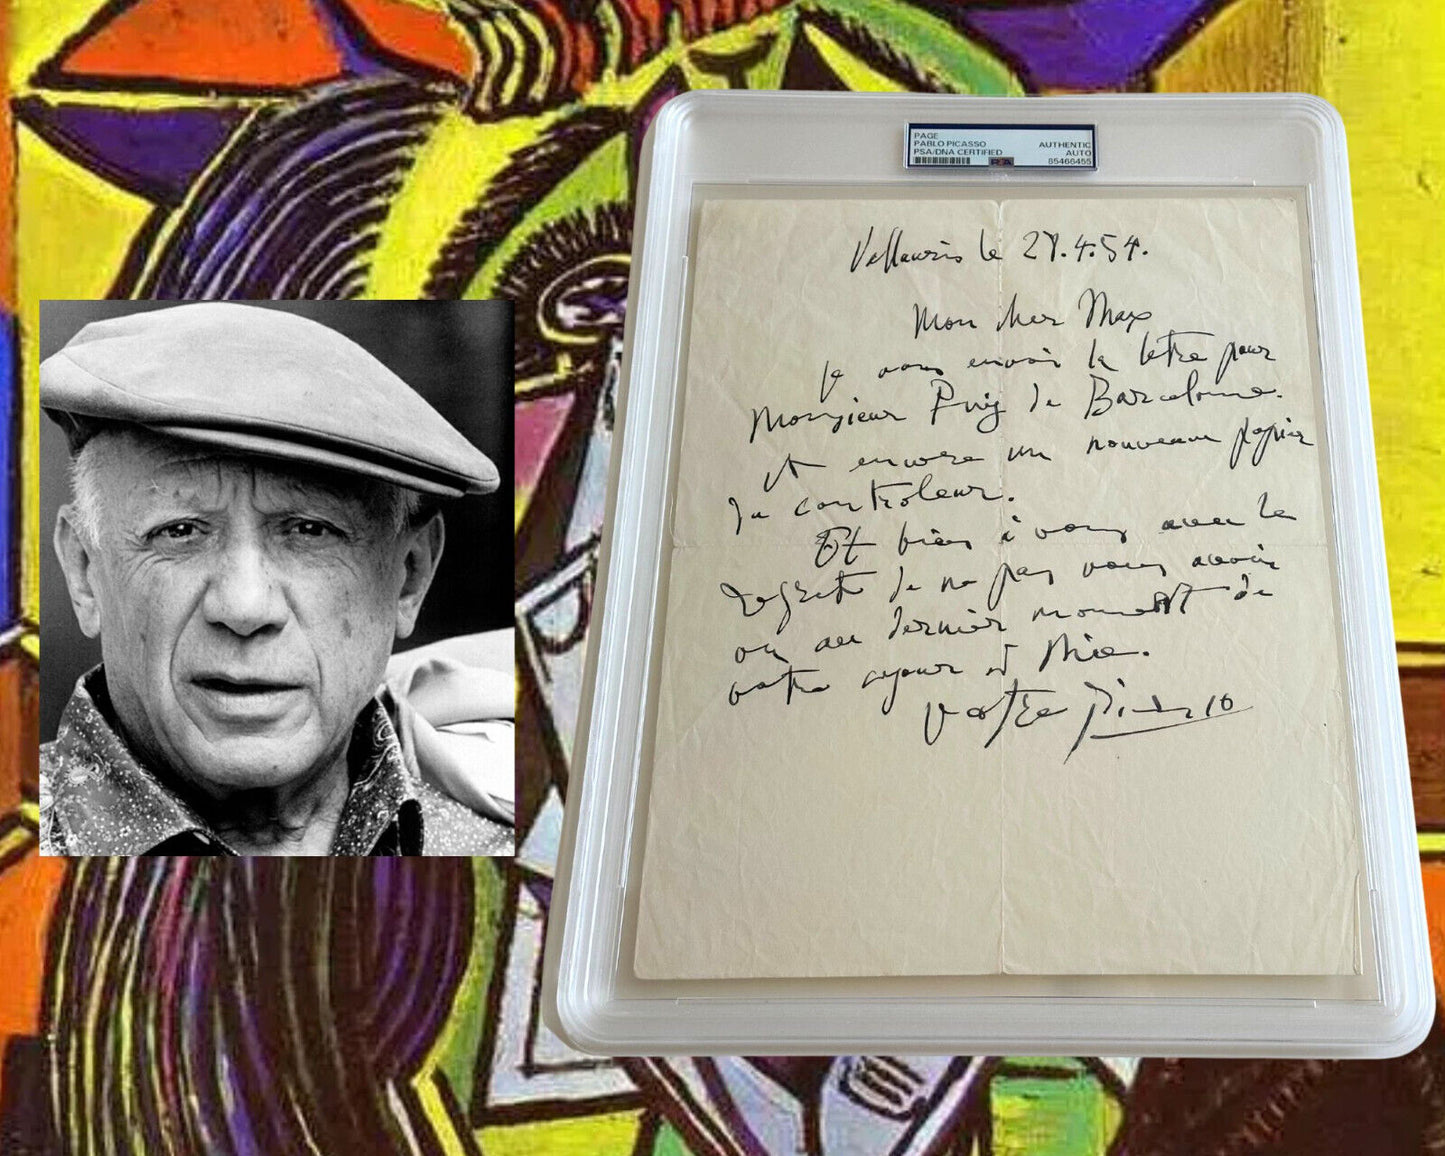 PAGE
PABLO PICASSO
PSA/DNA CERTIFIED
AUTHENTIC
AUTO
PSA
85466455
Vallauris le 27.4.54.
Mon cher Max
je vous envoi la letre pour
Monsieur Puig de Barcelone.
et encore un nouveau papier
du controleur.
Et bien à vous avec le
regret de ne pas vous avoir
vu au dernier moment de
votre sejour à Nice.
Votre Picasso